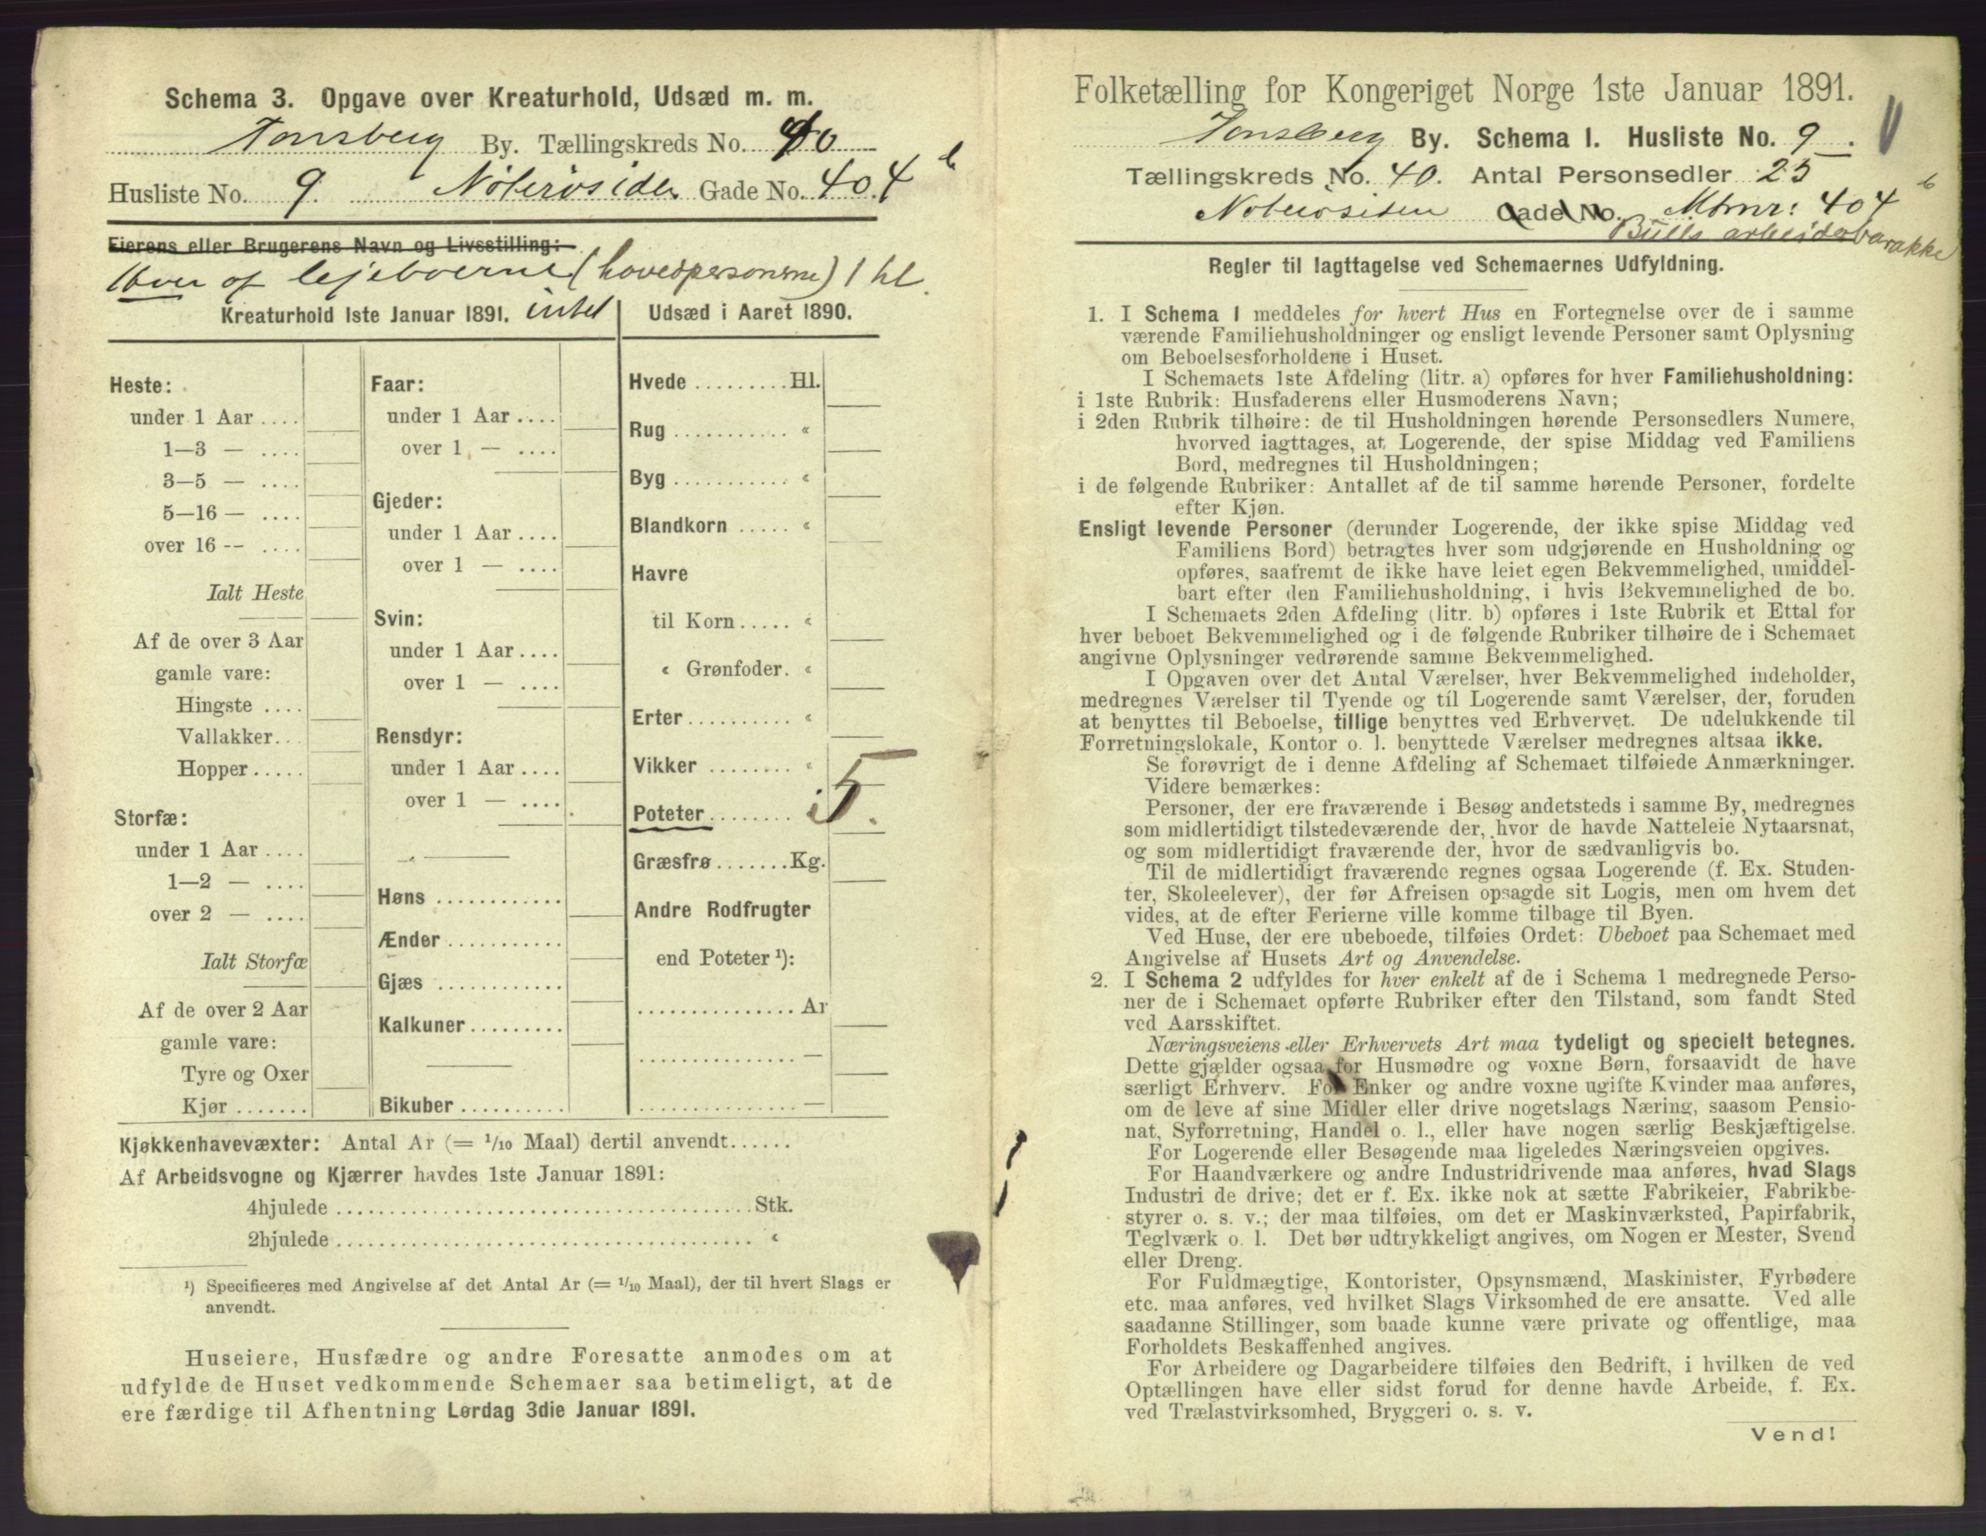 Schema 3. Opgave over Kreaturhold, Udsæd m. m.
Tønsberg By. Tællingskreds No. 40
Husliste No. 9. Nøterøsiden Gade No. 404 b
Eierens eller Brugerens Navn og Livsstilling:
Hver af lejeboerne (hovedpersonerne) 1 hl.
Kreaturhold 1ste Januar 1891. intet
Heste:
under 1 Aar ....
1—3 — ....
3—5 — ....
5—16 — ....
over 16 -- ....
Ialt Heste
Af de over 3 Aar
gamle vare:
Hingste ....
Vallakker...
Hopper.....
Storfæ:
under 1 Aar ....
1—2 — ....
over 2 — ....
Ialt Storfæ
Af de over 2 Aar
gamle vare:
Tyre og Oxer
Kjør .......
Faar:
under 1 Aar ....
over 1 — ....
Gjeder:
under 1 Aar ....
over 1 — ....
Svin:
under 1 Aar ....
over 1 — ....
Rensdyr:
under 1 Aar ....
over 1 — ....
Høns ............
Ænder ...........
Gjæs ............
Kalkuner.........
Bikuber ..........
Udsæd i Aaret 1890.
Hvede .........Hl.
Rug ........... «
Byg ........... «
Blandkorn ..... «
Havre
til Korn ..... «
« Grønfoder. «
Erter.......... «
Vikker ........ «
Poteter ........ 5.
Græsfrø .......Kg.
Andre Rodfrugter
end Poteter ¹):
...............Ar
............... —
............... —
Kjøkkenhavevæxter: Antal Ar (= 1/10 Maal) dertil anvendt......
Af Arbeidsvogne og Kjærrer havdes 1ste Januar 1891:
4hjulede .......................................Stk.
2hjulede ....................................... «
¹) Specificeres med Angivelse af det Antal Ar (= 1/10 Maal), der til hvert Slags er
anvendt.
Huseiere, Husfædre og andre Foresatte anmodes om at
udfylde de Huset vedkommende Schemaer saa betimeligt, at de
ere færdige til Afhentning Lørdag 3die Januar 1891.
Folketælling for Kongeriget Norge 1ste Januar 1891.
Tønsberg By. Schema I. Husliste No. 9.
Tællingskreds No. 40. Antal Personsedler 25
Nøterøsiden Gade No. Mtrnr: 404 b
Bulls arbeiderbarakke
Regler til Iagttagelse ved Schemaernes Udfyldning.
1. I Schema 1 meddeles for hvert Hus en Fortegnelse over de i samme
værende Familiehusholdninger og ensligt levende Personer samt Oplysning
om Beboelsesforholdene i Huset.
I Schemaets 1ste Afdeling (litr. a) opføres for hver Familiehusholdning:
i 1ste Rubrik: Husfaderens eller Husmoderens Navn;
i 2den Rubrik tilhøire: de til Husholdningen hørende Personsedlers Numere,
hvorved iagttages, at Logerende, der spise Middag ved Familiens
Bord, medregnes til Husholdningen;
i de følgende Rubriker: Antallet af de til samme hørende Personer, fordelte
efter Kjøn.
Ensligt levende Personer (derunder Logerende, der ikke spise Middag ved
Familiens Bord) betragtes hver som udgjørende en Husholdning og
opføres, saafremt de ikke have leiet egen Bekvemmelighed, umiddel-
bart efter den Familiehusholdning, i hvis Bekvemmelighed de bo.
I Schemaets 2den Afdeling (litr. b) opføres i 1ste Rubrik et Ettal for
hver beboet Bekvemmelighed og i de følgende Rubriker tilhøire de i Schemaet
angivne Oplysninger vedrørende samme Bekvemmelighed.
I Opgaven over det Antal Værelser, hver Bekvemmelighed indeholder,
medregnes Værelser til Tyende og til Logerende samt Værelser, der, foruden
at benyttes til Beboelse, tillige benyttes ved Erhvervet. De udelukkende til
Forretningslokale, Kontor o. l. benyttede Værelser medregnes altsaa ikke.
Se forøvrigt de i denne Afdeling af Schemaet tilføiede Anmærkninger.
Videre bemærkes:
Personer, der ere fraværende i Besøg andetsteds i samme By, medregnes
som midlertidigt tilstedeværende der, hvor de havde Natteleie Nytaarsnat,
og som midlertidigt fraværende der, hvor de sædvanligvis bo.
Til de midlertidigt fraværende regnes ogsaa Logerende (f. Ex. Studen-
ter, Skoleelever), der før Afreisen opsagde sit Logis, men om hvem det
vides, at de efter Ferierne ville komme tilbage til Byen.
Ved Huse, der ere ubeboede, tilføies Ordet: Ubeboet paa Schemaet med
Angivelse af Husets Art og Anvendelse.
2. I Schema 2 udfyldes for hver enkelt af de i Schema 1 medregnede Perso-
ner de i Schemaet opførte Rubriker efter den Tilstand, som fandt Sted
ved Aarsskiftet.
Næringsveiens eller Erhvervets Art maa tydeligt og specielt betegnes.
Dette gjælder ogsaa for Husmødre og voxne Børn, forsaavidt de have
særligt Erhverv. For Enker og andre voxne ugifte Kvinder maa anføres,
om de leve af sine Midler eller drive nogetslags Næring, saasom Pensio-
nat, Syforretning, Handel o. l., eller have nogen særlig Beskjæftigelse.
For Logerende eller Besøgende maa ligeledes Næringsveien opgives.
For Haandværkere og andre Industridrivende maa anføres, hvad Slags
Industri de drive; det er f. Ex. ikke nok at sætte Fabrikeier, Fabrikbe-
styrer o. s. v.; der maa tilføies, om det er Maskinværksted, Papirfabrik,
Teglværk o. l. Det bør udtrykkeligt angives, om Nogen er Mester, Svend
eller Dreng.
For Fuldmægtige, Kontorister, Opsynsmænd, Maskinister, Fyrbødere
etc. maa anføres, ved hvilket Slags Virksomhed de ere ansatte. Ved alle
saadanne Stillinger, som baade kunne være private og offentlige, maa
Forholdets Beskaffenhed angives.
For Arbeidere og Dagarbeidere tilføies den Bedrift, i hvilken de ved
Optællingen have eller sidst forud for denne havde Arbeide, f. Ex.
ved Trælastvirksomhed, Bryggeri o. s. v.
Vend!